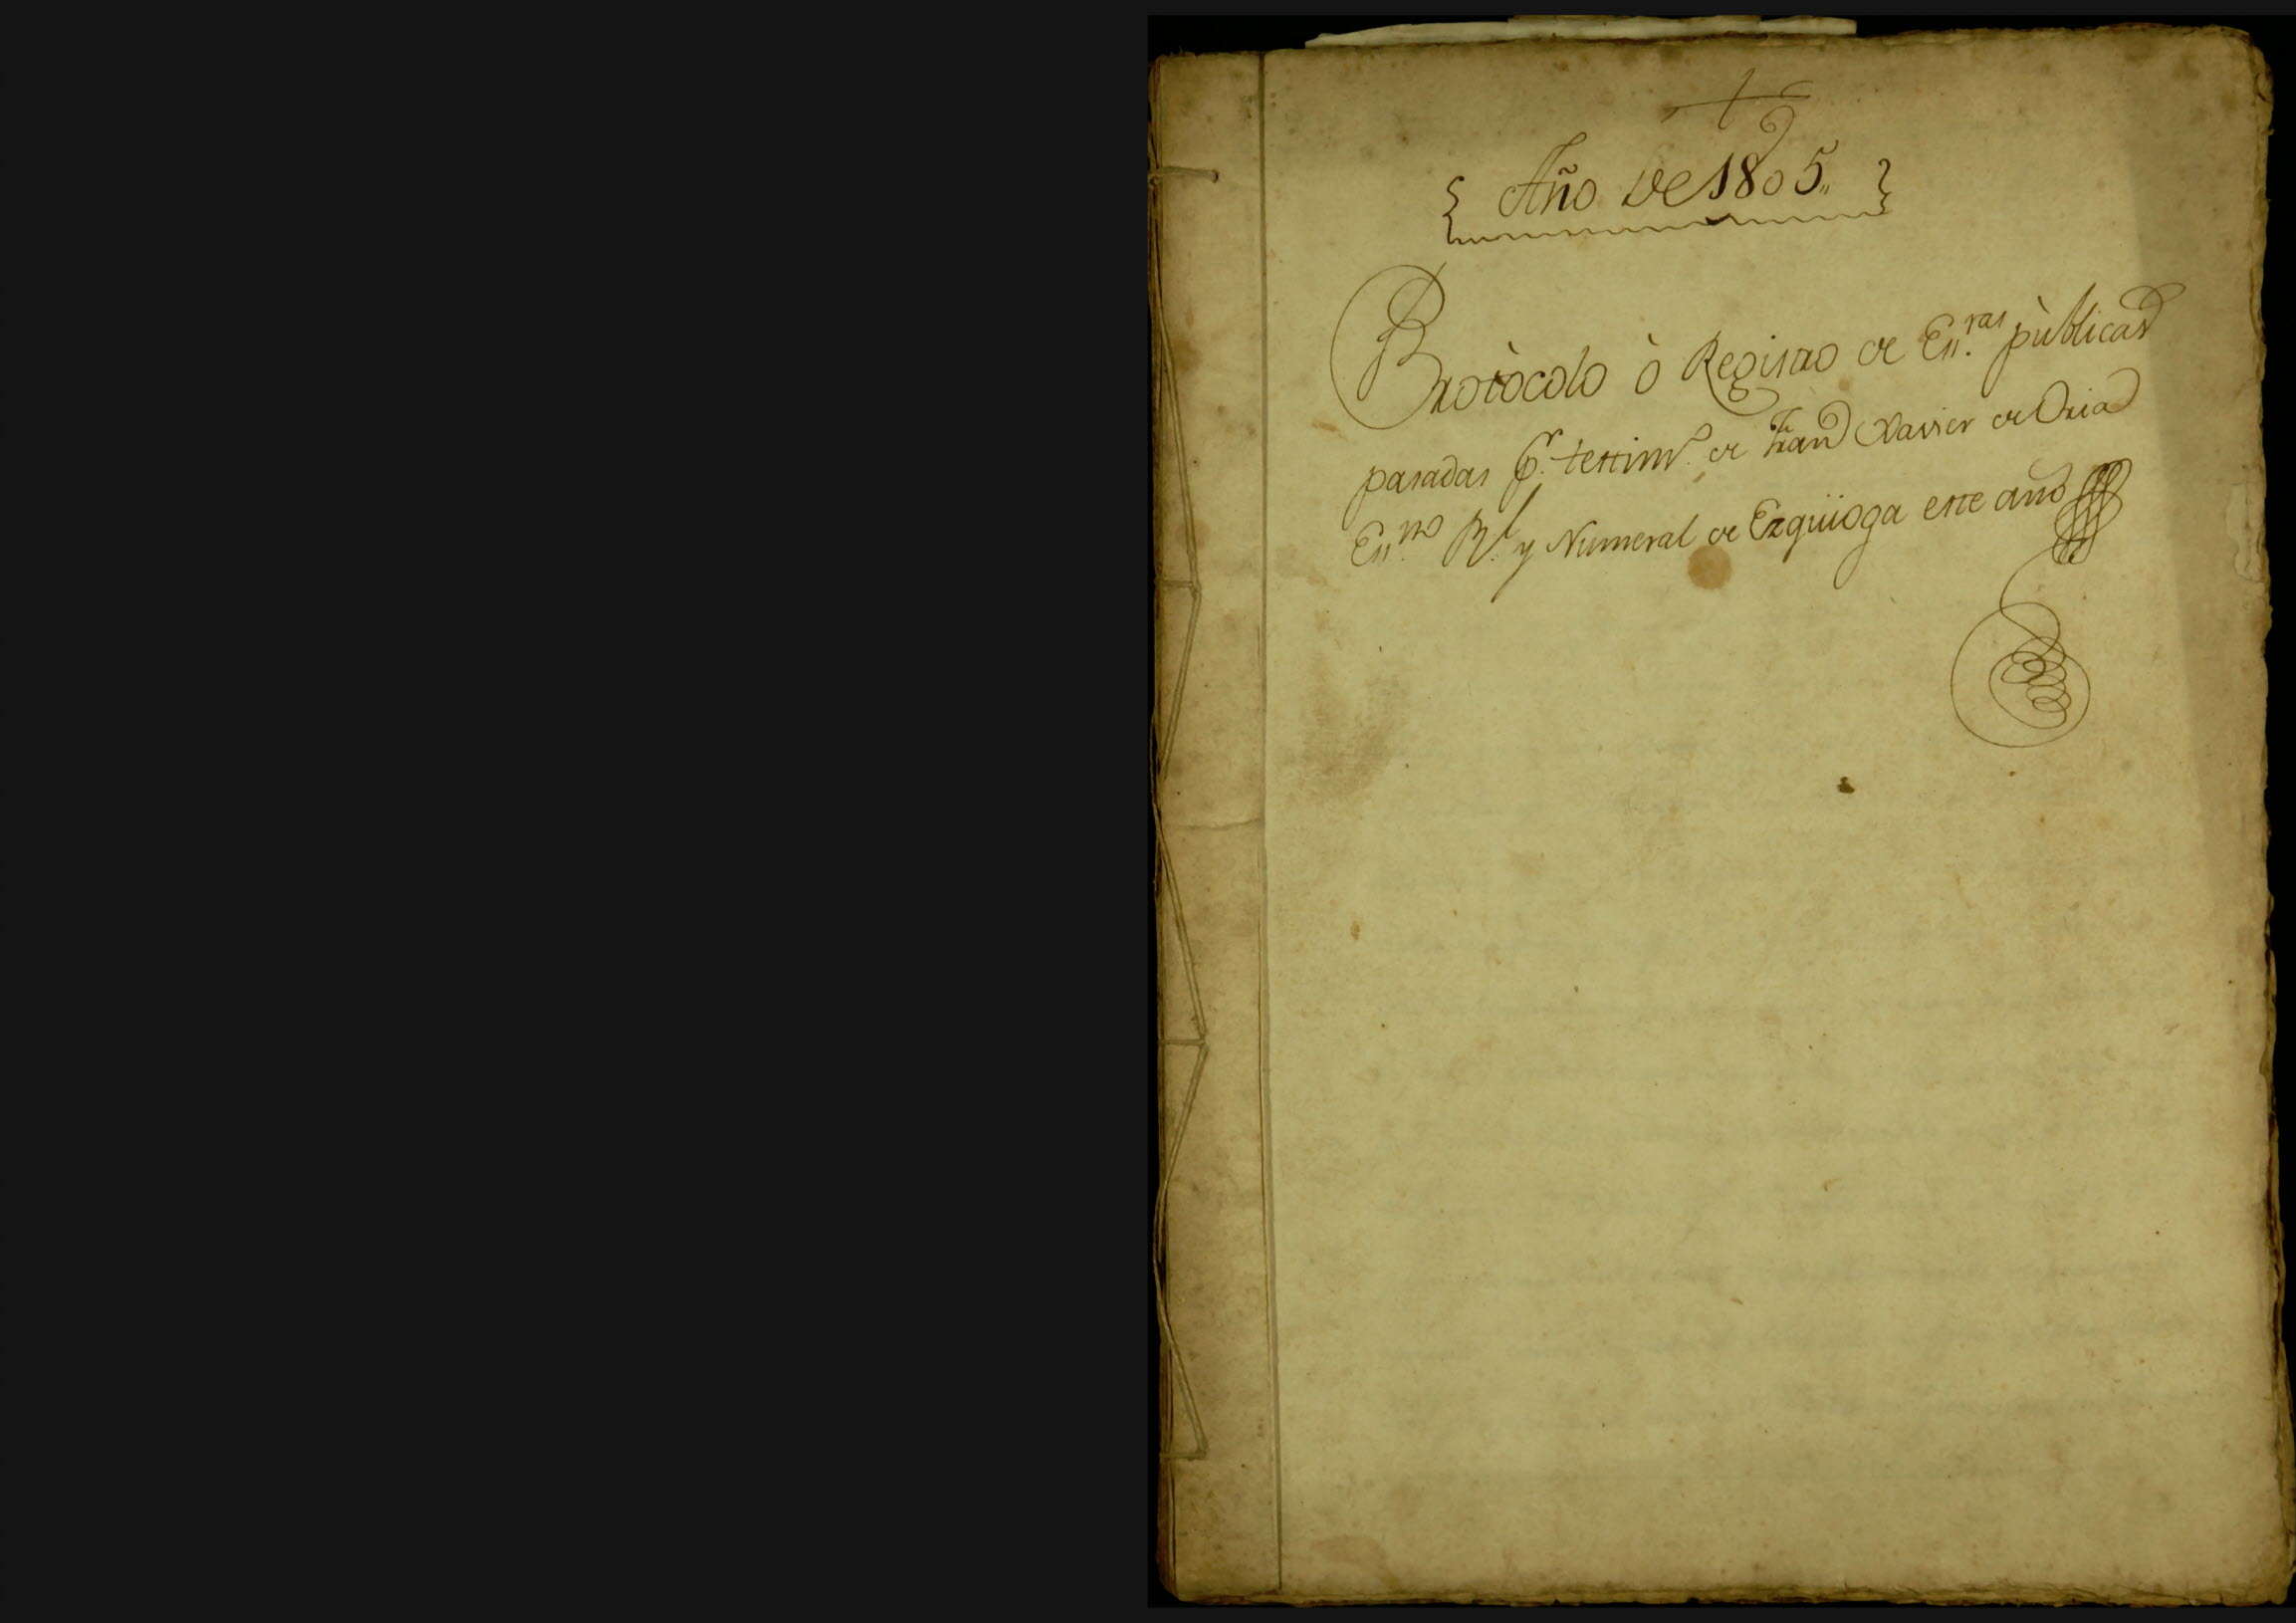 +
Año de 1805,,
Protòcolo ò Registro de Ess.ras pùblicas
pasadas p.r testim.o de Fran.co Xavier de Oria
Ess.no R.l y Numeral de Ezquioga este año